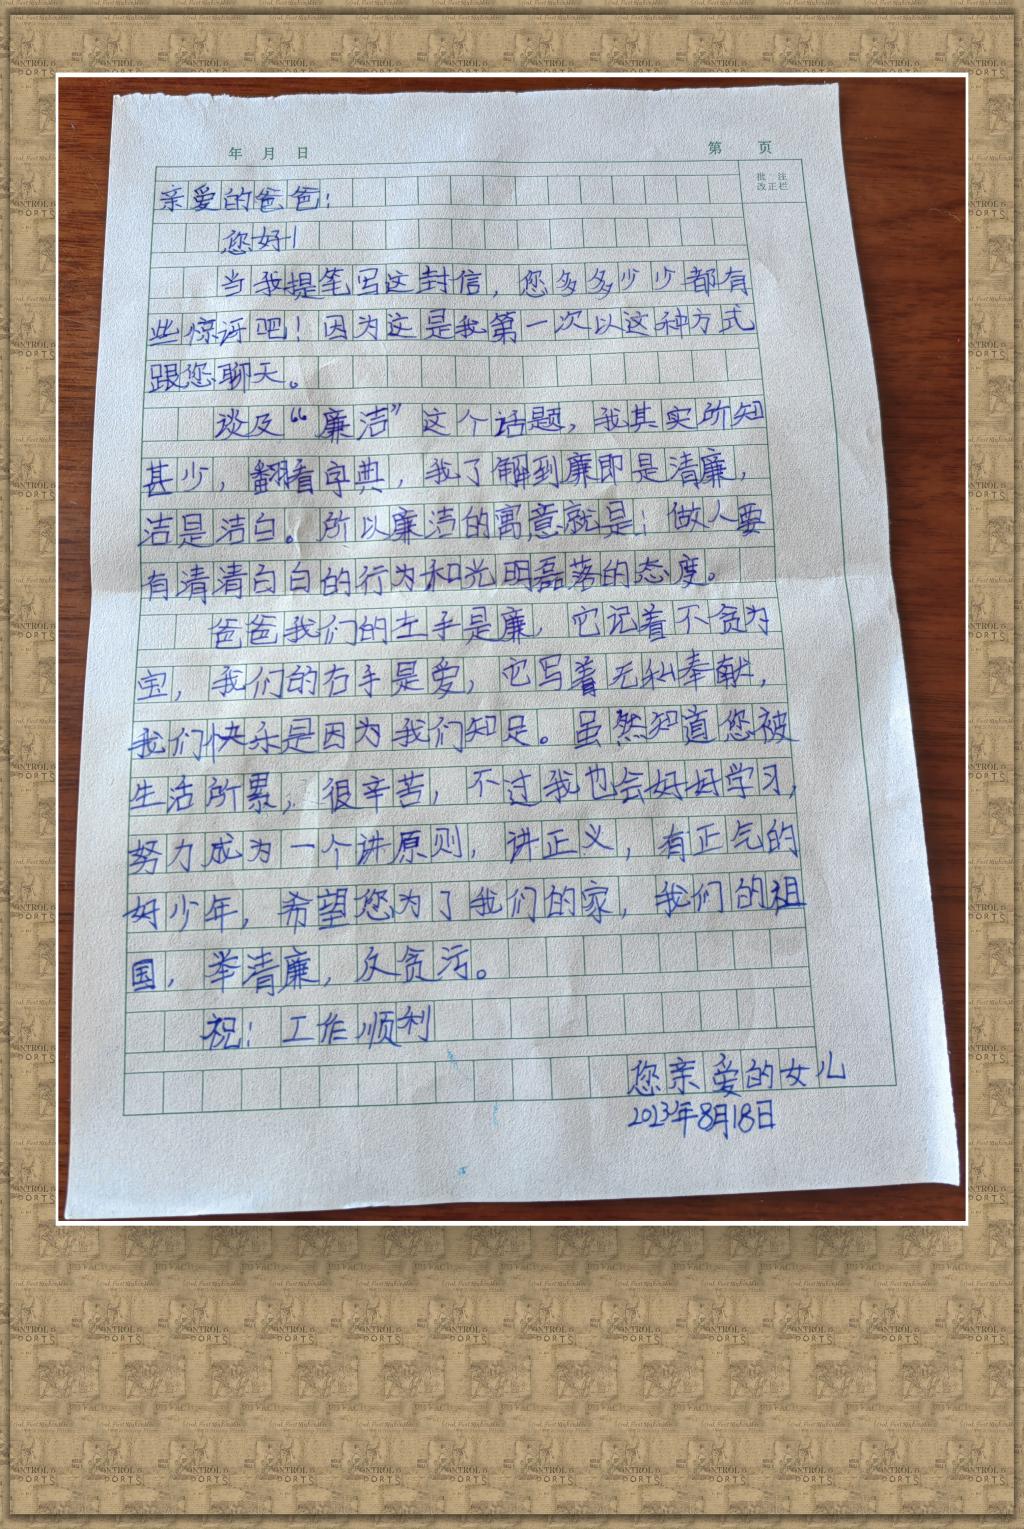 年 月 日 第 页
批 注
改正栏
亲爱的爸爸：
您好！
当我提笔写这封信，您多多少少都有
些惊讶吧！因为这是我第一次以这种方式
跟您聊天。
谈及“廉洁”这个话题，我其实所知
甚少，翻看字典，我了解到廉即是清廉，
洁是洁白。所以廉洁的寓意就是：做人要
有清清白白的行为和光明磊落的态度。
爸爸我们的左手是廉，它记着不贪为
宝，我们的右手是爱，它写着无私奉献，
我们快乐是因为我们知足。虽然知道您被
生活所累，很辛苦，不过我也会好好学习，
努力成为一个讲原则，讲正义，有正气的
好少年，希望您为了我们的家，我们的祖
国，举清廉，反贪污。
祝：工作顺利
您亲爱的女儿
2023年8月18日